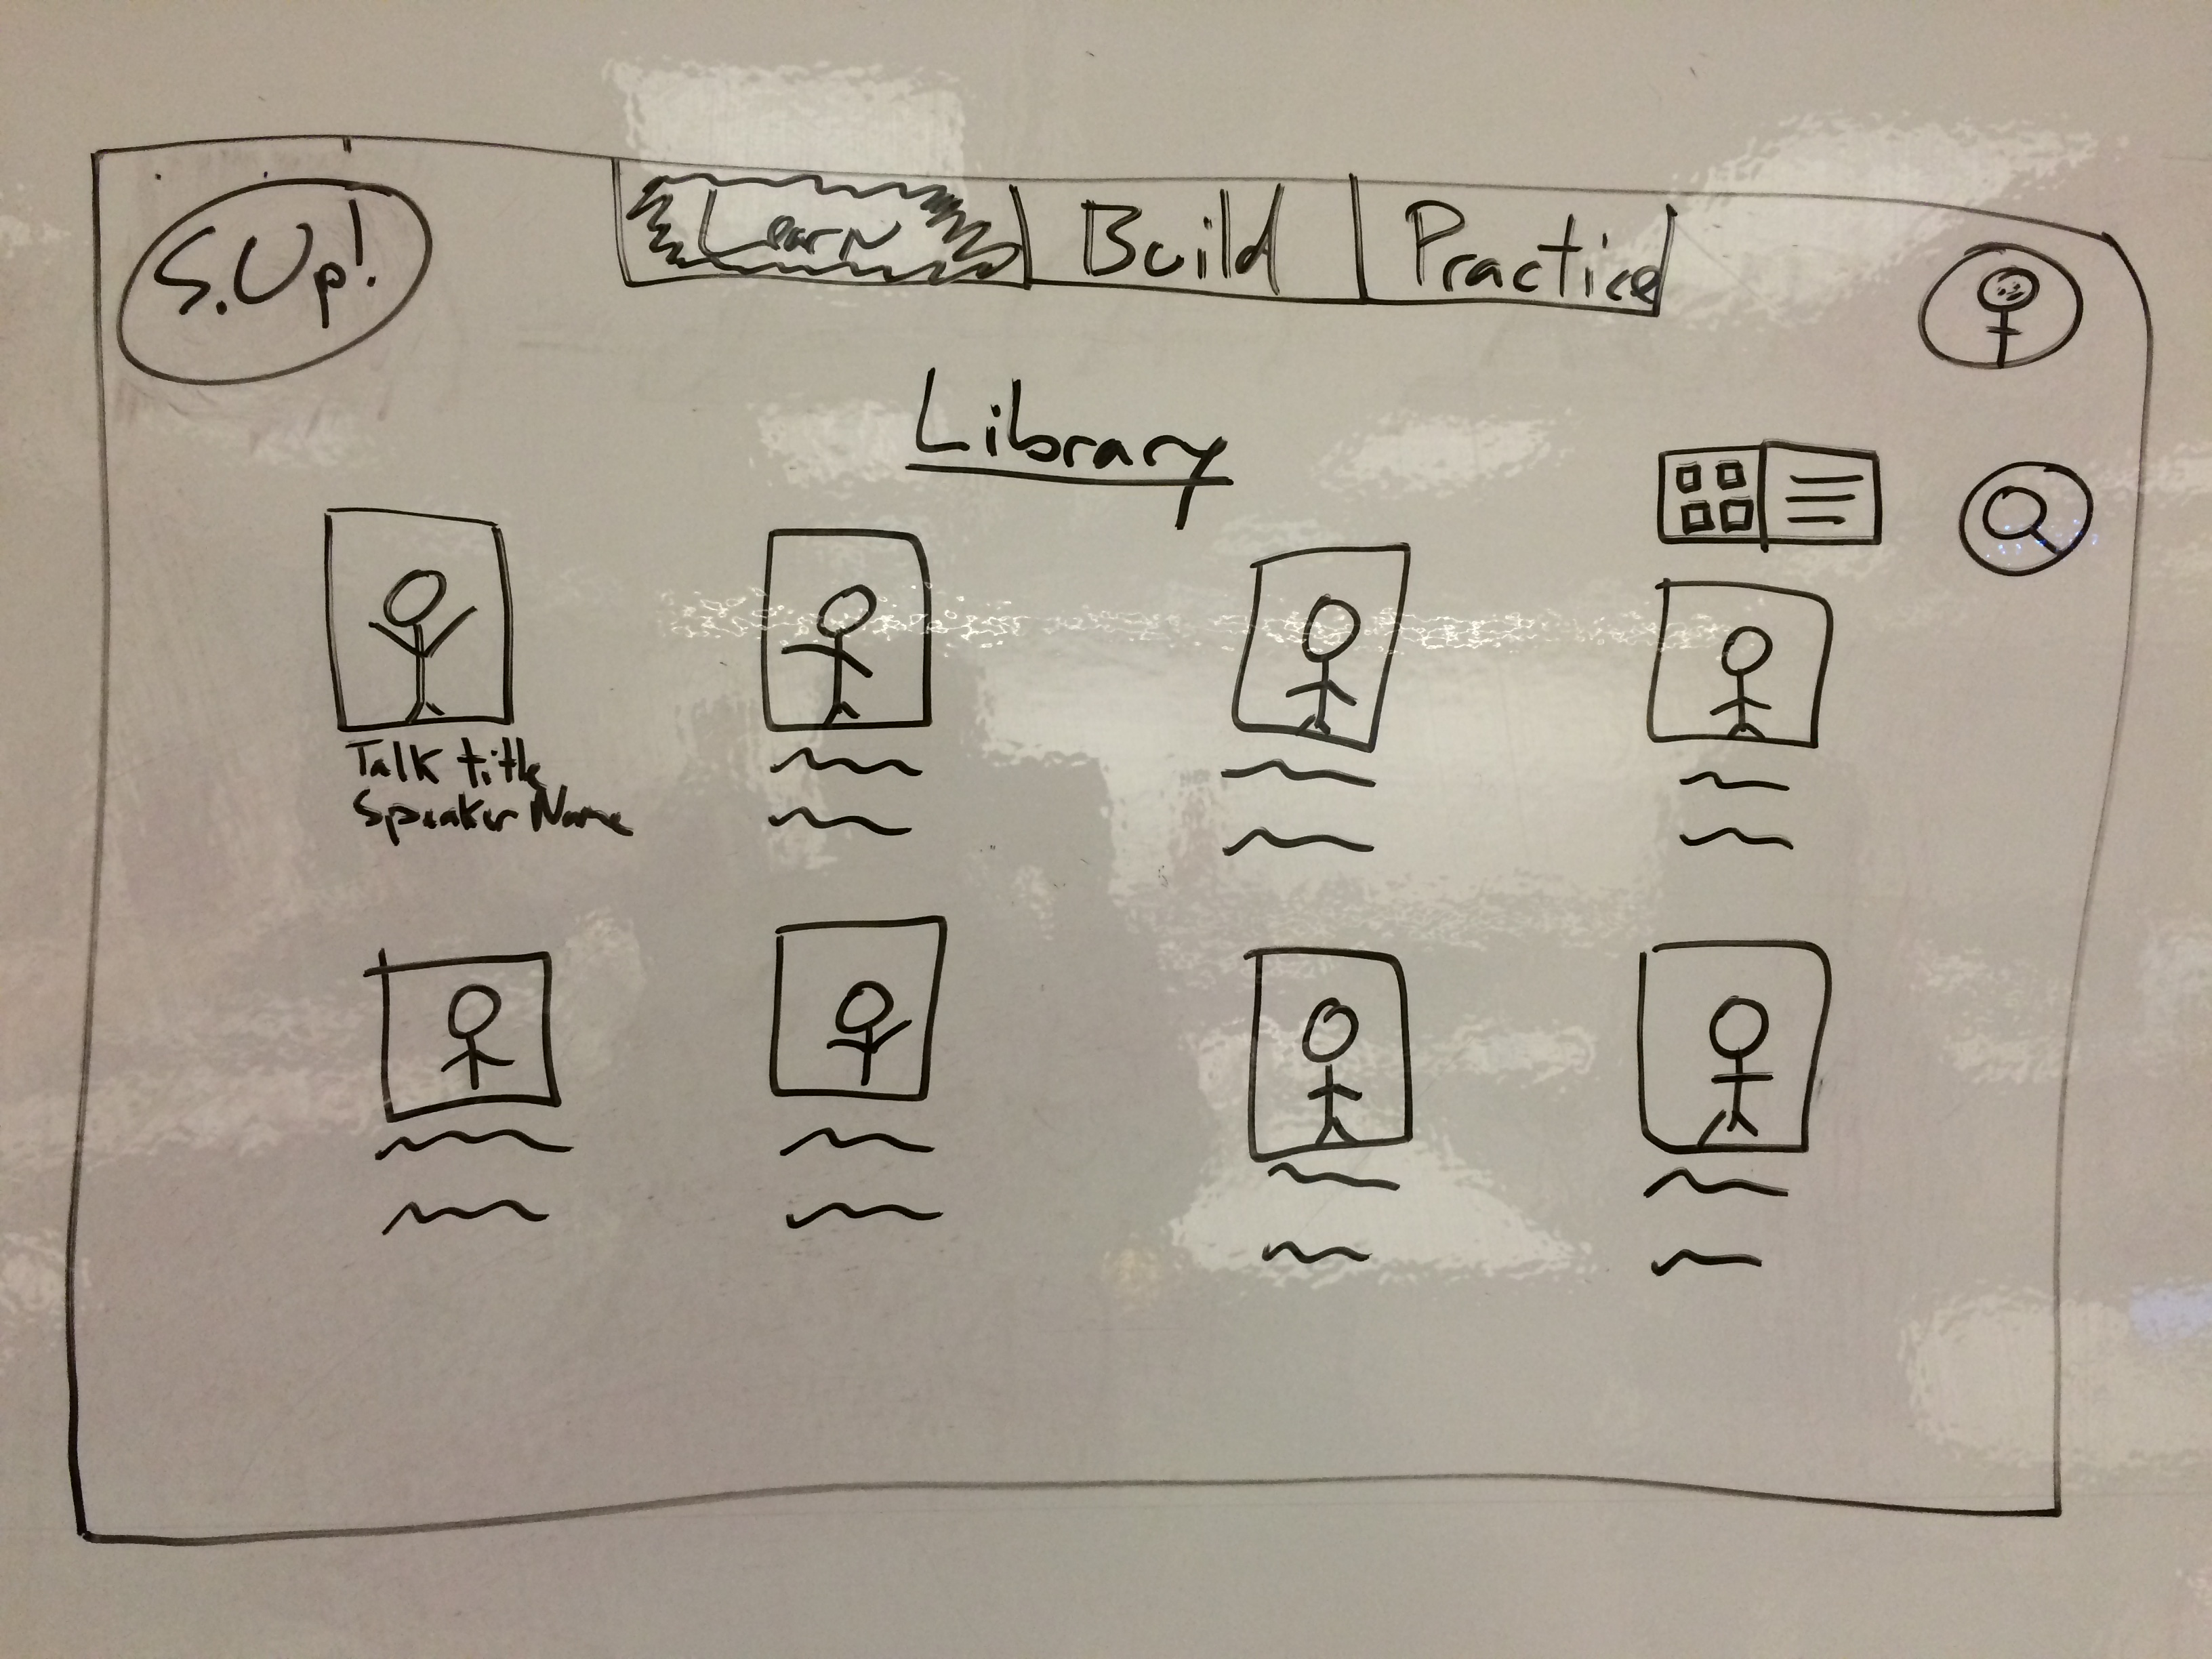 S.Up!
Learn
Build
Practice
Library
Talk title
Speaker Name